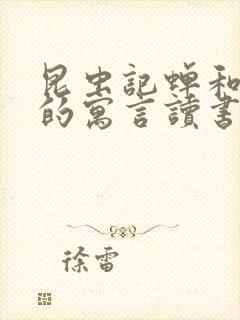 昆虫記蟬和
的寓言讀書
徐雷